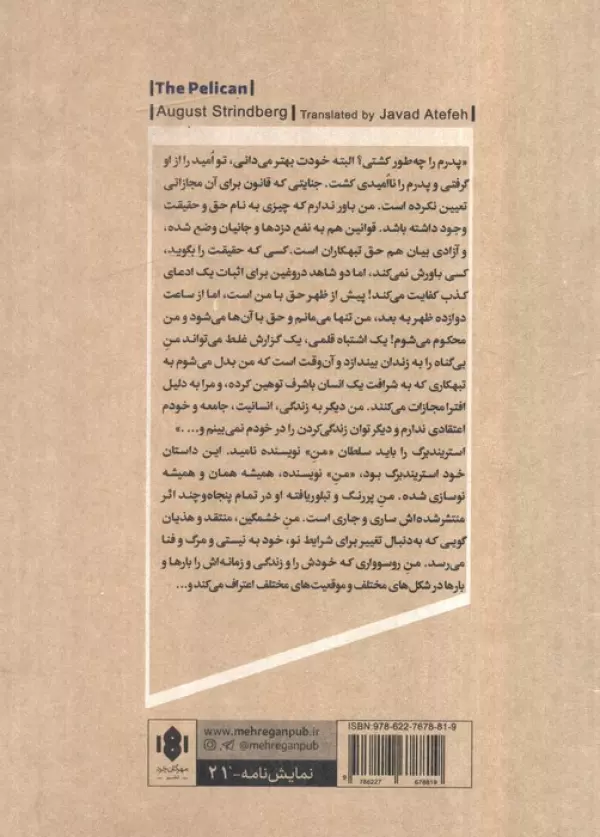 |The Pelican|
|August Strindberg| Translated by Javad Atefeh|
«پدرم را چه‌طور کشتی؟ البته خودت بهتر می‌دانی، تو اُمید را از او
گرفتی و پدرم را نااُمیدی کشت. جنایتی که قانون برای آن مجازاتی
تعیین نکرده است. من باور ندارم که چیزی به نام حق و حقیقت
وجود داشته باشد. قوانین هم به نفع دزدها و جانیان وضع شده،
و آزادی بیان هم حق تبهکاران است. کسی که حقیقت را بگوید،
کسی باورش نمی‌کند، اما دو شاهد دروغین برای اثبات یک ادعای
کذب کفایت می‌کند! پیش از ظهر حق با من است، اما از ساعت
دوازده ظهر به بعد، من تنها می‌مانم و حق با آن‌ها می‌شود و من
محکوم می‌شوم! یک اشتباه قلمی، یک گزارش غلط می‌تواند منِ
بی‌گناه را به زندان بیندازد و آن‌وقت است که من بدل می‌شوم به
تبهکاری که به شرافت یک انسان باشرف توهین کرده، و مرا به دلیل
افترا مجازات می‌کنند. من دیگر به زندگی، انسانیت، جامعه و خودم
اعتقادی ندارم و دیگر توان زندگی‌کردن را در خودم نمی‌بینم و... .»
استریندبرگ را باید سلطان «منِ» نویسنده نامید. این داستان
خود استریندبرگ بود، «منِ» نویسنده، همیشه همان و همیشه
نوسازی شده. منِ پررنگ و تبلوریافته او در تمام پنجاه‌وچند اثر
منتشرشده‌اش ساری و جاری است. منِ خشمگین، منتقد و هذیان
گویی که به‌دنبال تغییر برای شرایط نو، خود به نیستی و مرگ و فنا
می‌رسد. منِ روسوواری که خودش را و زندگی و زمانه‌اش را بارها و
بارها در شکل‌های مختلف و موقعیت‌های مختلف اعتراف می‌کند و...
مهرگان خرد
www.mehreganpub.ir
@mehreganpub
نمایش‌نامه-۲۱
ISBN: 978-622-7678-81-9
9 786227 678819